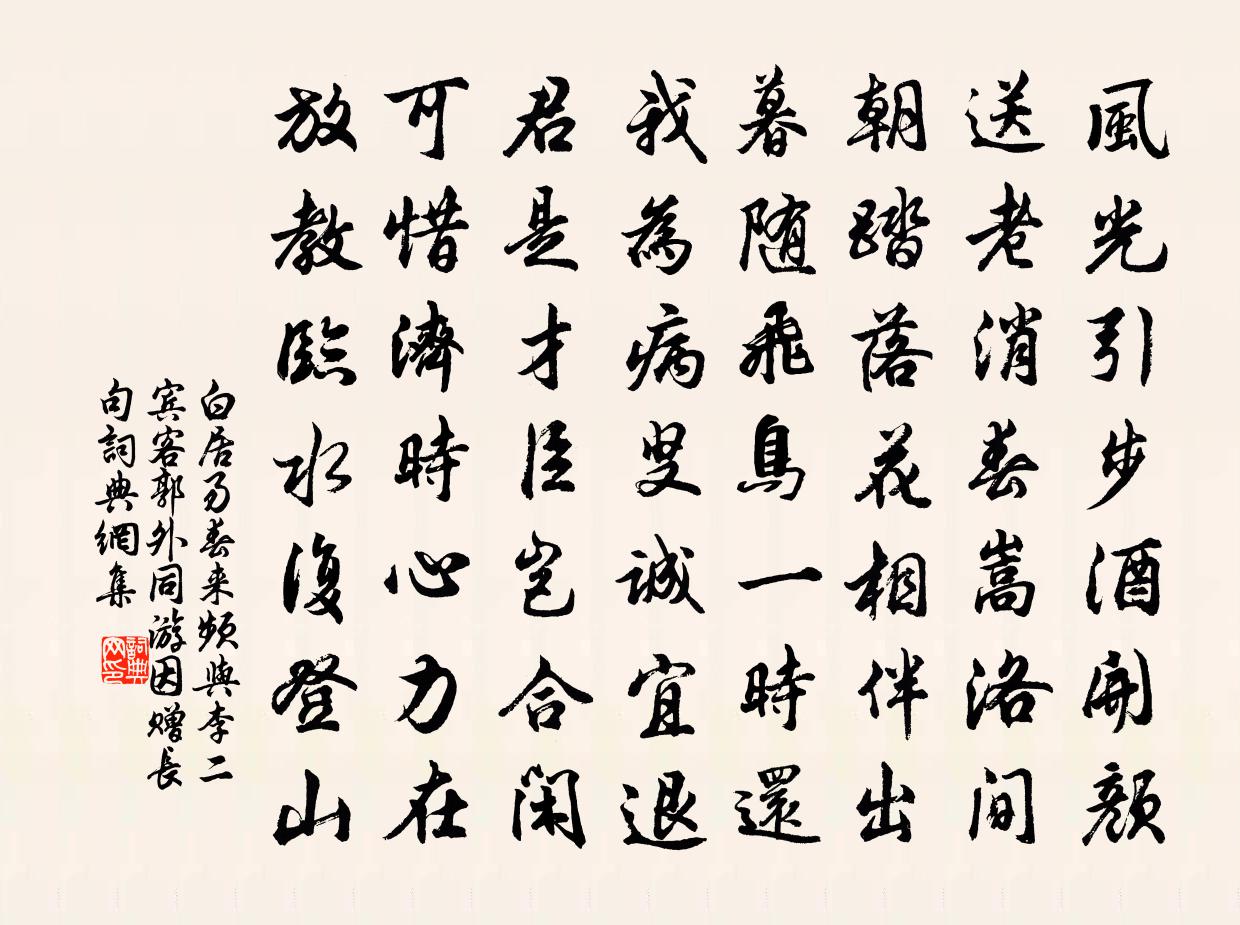 風光引步酒開顔
送老消春嵩洛間
朝踏落花相伴出
暮随飛鳥一時還
我為病叟誠宜退
君是才臣豈合閑
可惜濟時心力在
放教臨水復登山
白居易春来頻與李二
賓客郭外同游因贈長
句詞典網集
詞典
网印